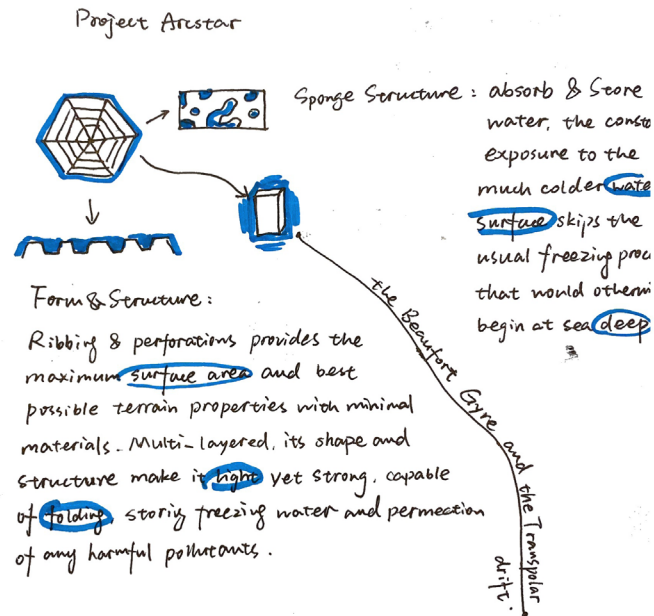 Project Arcstar
Sponge Structure: absorb & Store
water, the
exposure to the
much colder
surface skips the
usual freezing
that would
begin at sea deep
Form & Structure:
Ribbing & perforations provides the
maximum surface area and best
possible terrain properties with minimal
materials. Multi-layered, its shape and
structure make it light yet strong, capable
of folding, storing freezing water and permection
of any harmful pollutants.
the Beaufort Gyre and the Transpolar
drift.